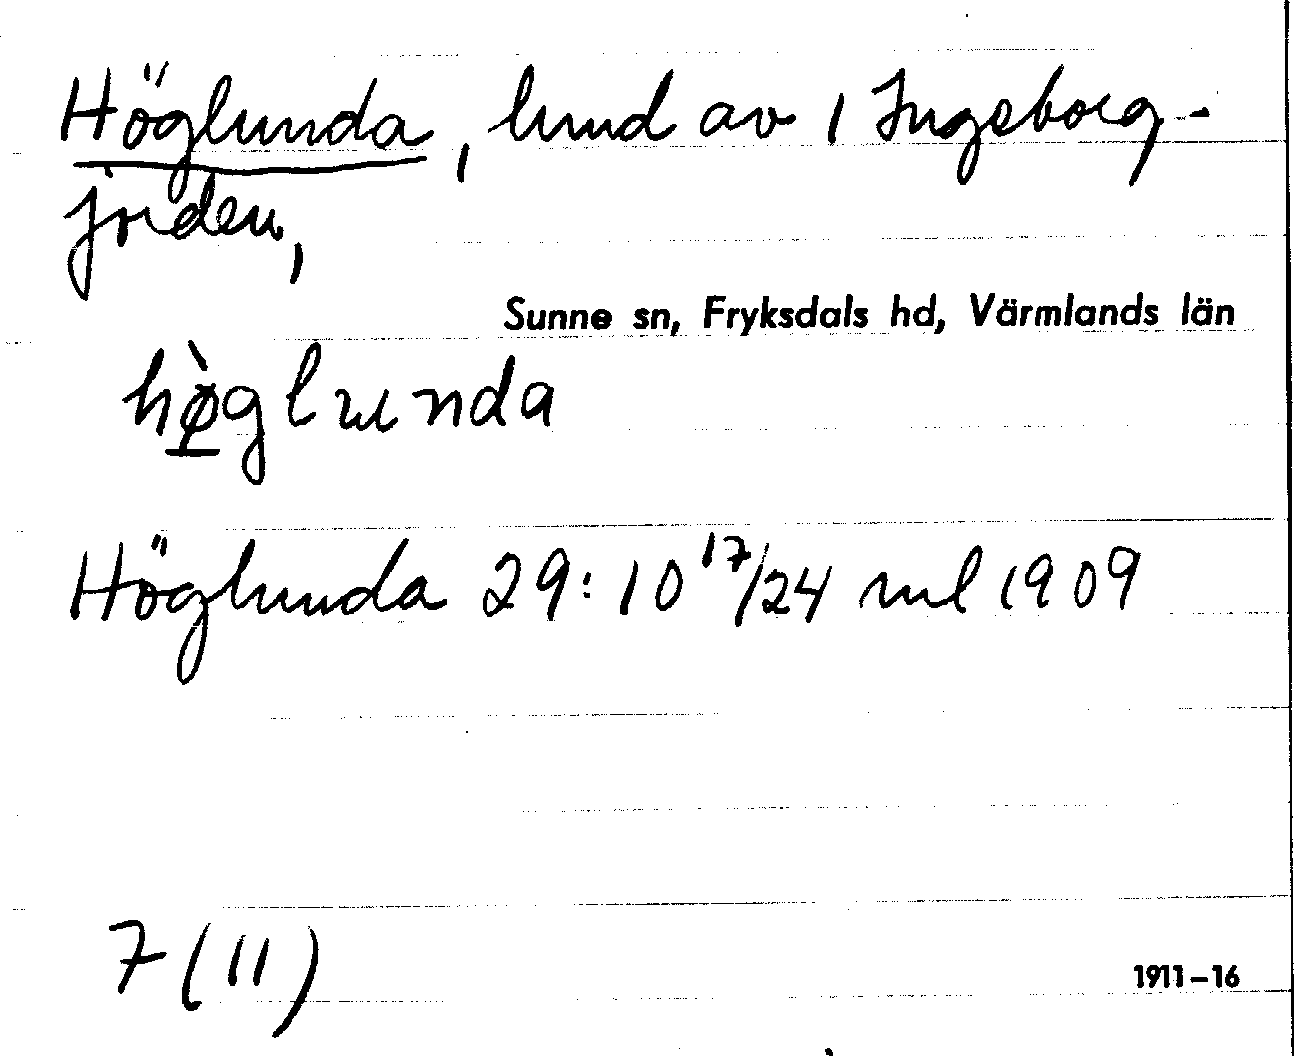 Höglunda, lund av 1 Ingeborg-
jorden,
Sunne sn, Fryksdals hd, Värmlands län
hø̀glunda
Höglunda 29:10 17/24 ml 1909
7 (11)
1911–16